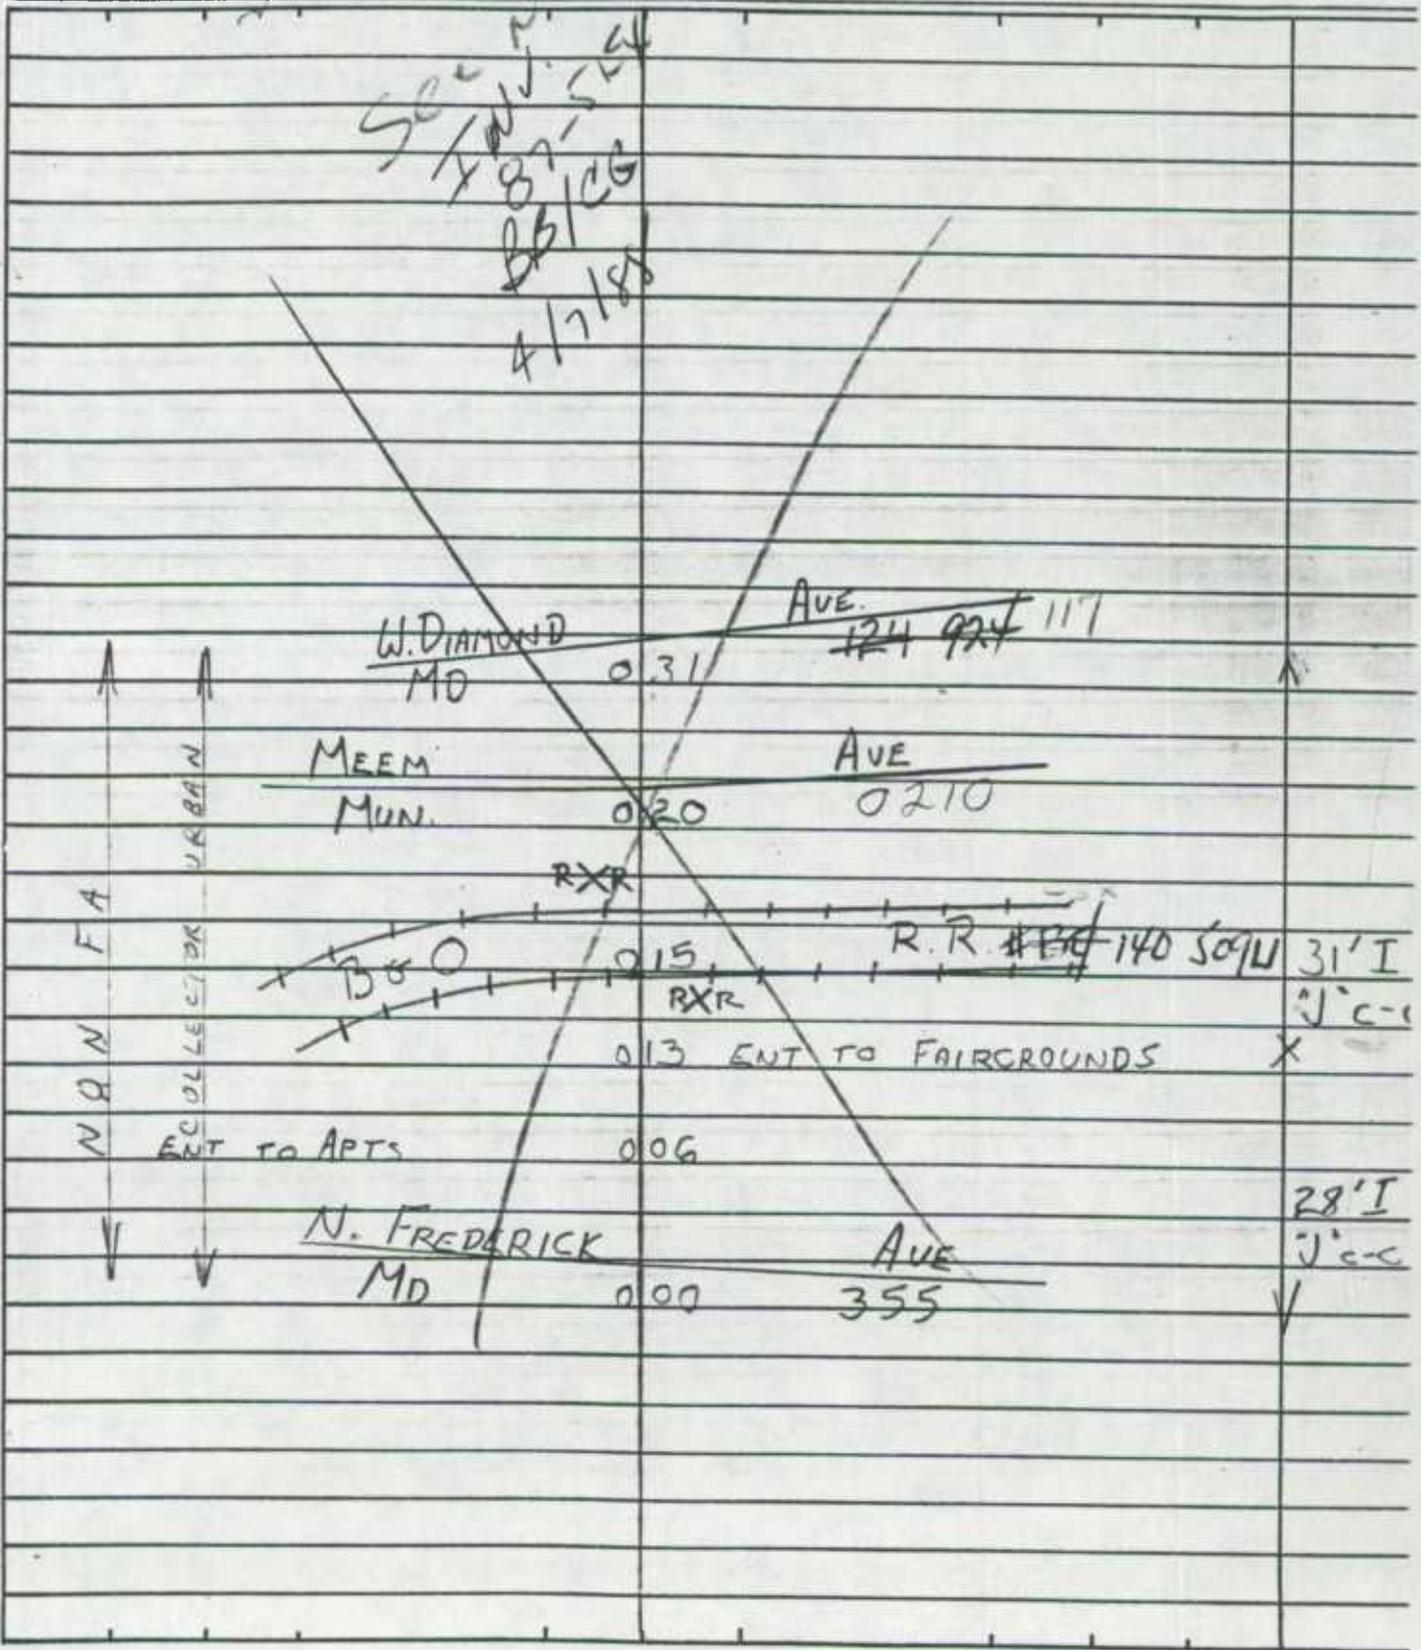 INV.
87-
BB/CG
4/7/88
W. DIAMOND AVE. 124 924 117
MD 0 31
MEEM AVE
MUN. 0 20 0210
RXR
B&O 0 15 R.R. 140 509U 31' I
RXR "J" C-C
0 13 ENT TO FAIRGROUNDS X
ENT TO APTS 0 06
28' I
N. FREDERICK AVE "J" C-C
MD 0 00 355
NON FA
COLLECTOR URBAN